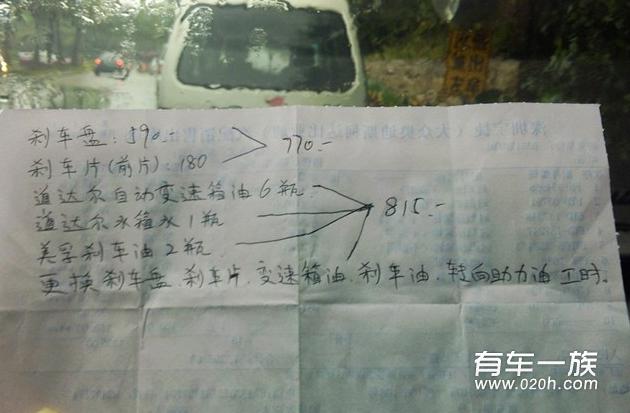 刹车盘:590.-
770.-
刹车片(前片):180
道达尔自动变速箱油6瓶
道达尔水箱水1瓶
815.-
美孚刹车油2瓶
更换刹车盘.刹车片.变速箱油.刹车油.转向助力油工时.
有车一族
www.020h.com